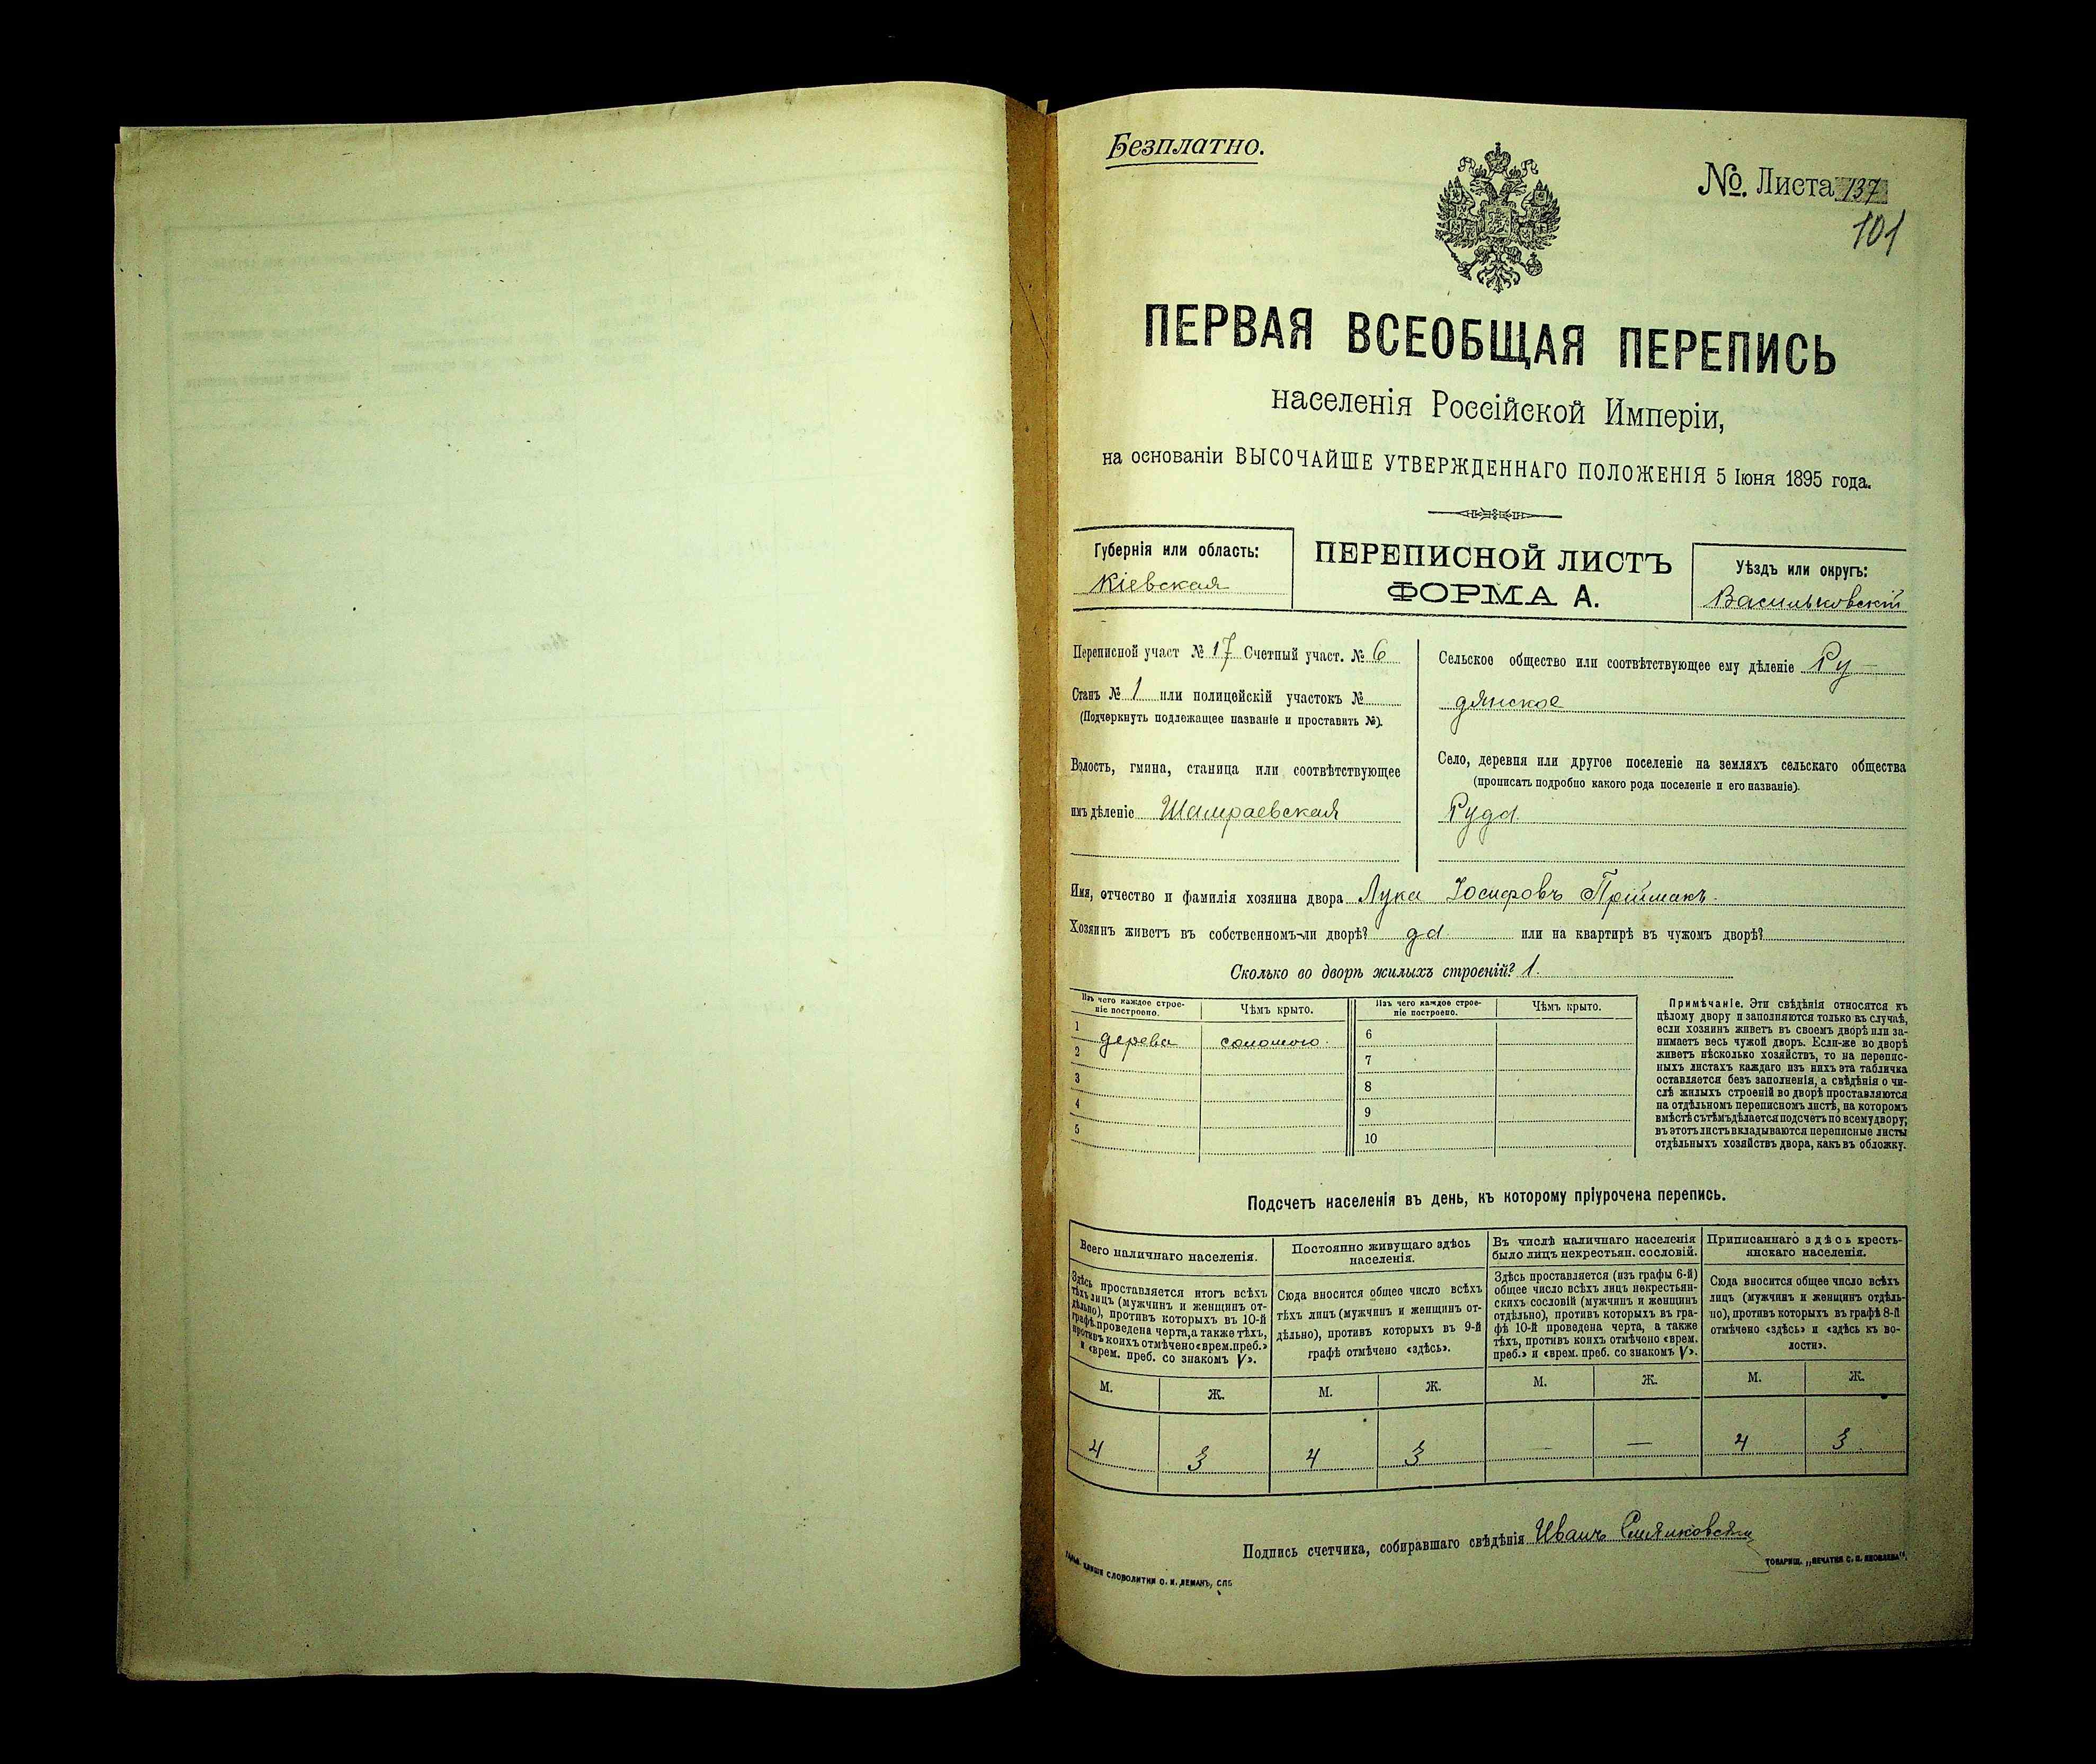 Безплатно.
№. Листа 137
101
ПЕРВАЯ ВСЕОБЩАЯ ПЕРЕПИСЬ
населенія Россійской Имперіи,
на основаніи ВЫСОЧАЙШЕ УТВЕРЖДЕННАГО ПОЛОЖЕНІЯ 5 Іюня 1895 года.
Губернія или область:
Кіевская
ПЕРЕПИСНОЙ ЛИСТЪ
ФОРМА А.
Уѣздъ или округъ:
Васильковскій
Переписной участ № 17 Счетный участ. № 6
Станъ № 1 или полицейскій участокъ №
(Подчеркнуть подлежащее названіе и проставить №).
Волость, гмина, станица или соотвѣтствующее
имъ дѣленіе Шамраевская
Сельское общество или соотвѣтствующее ему дѣленіе Ру-
дянское
Село, деревня или другое поселеніе на земляхъ сельскаго общества
(прописать подробно какого рода поселеніе и его названіе).
Руда
Имя, отчество и фамилія хозяина двора Лука Іосифовъ Пріймакъ.
Хозяинъ живетъ въ собственномъ-ли дворѣ? да или на квартирѣ въ чужомъ дворѣ?
Сколько во дворѣ жилыхъ строеній? 1.
Изъ чего каждое строе-
ніе построено.
Чѣмъ крыто.
Изъ чего каждое строе-
ніе построено.
Чѣмъ крыто.
1 дерева соломою.
2
3
4
5
6
7
8
9
10
Примѣчаніе. Эти свѣдѣнія относятся къ
цѣлому двору и заполняются только въ случаѣ,
если хозяинъ живетъ въ своемъ дворѣ или за-
нимаетъ весь чужой дворъ. Если-же во дворѣ
живетъ нѣсколько хозяйствъ, то на перепис-
ныхъ листахъ каждаго изъ нихъ эта табличка
оставляется безъ заполненія, а свѣдѣнія о чи-
слѣ жилыхъ строеній во дворѣ проставляются
на отдѣльномъ переписномъ листѣ, на которомъ
вмѣстѣ съ тѣмъ дѣлается подсчетъ по всему двору;
въ этотъ листъ вкладываются переписные листы
отдѣльныхъ хозяйствъ двора, какъ въ обложку.
Подсчетъ населенія въ день, къ которому пріурочена перепись.
Всего наличнаго населенія.
Здѣсь проставляется итогъ всѣхъ
тѣхъ лицъ (мужчинъ и женщинъ от-
дѣльно), противъ которыхъ въ 10-й
графѣ проведена черта, а также тѣхъ,
противъ коихъ отмѣчено «врем. преб.»
и «врем. преб. со знакомъ V».
Постоянно живущаго здѣсь
населенія.
Сюда вносится общее число всѣхъ
тѣхъ лицъ (мужчинъ и женщинъ от-
дѣльно), противъ которыхъ въ 9-й
графѣ отмѣчено «здѣсь».
Въ числѣ наличнаго населенія
было лицъ некрестьян. сословій.
Здѣсь проставляется (изъ графы 6-й)
общее число всѣхъ лицъ некрестьян-
скихъ сословій (мужчинъ и женщинъ
отдѣльно), противъ которыхъ въ гра-
фѣ 10-й проведена черта, а также
тѣхъ, противъ коихъ отмѣчено «врем.
преб.» и «врем. преб. со знакомъ V».
Приписаннаго здѣсь кресть-
янскаго населенія.
Сюда вносится общее число всѣхъ
лицъ (мужчинъ и женщинъ отдѣль-
но), противъ которыхъ въ графѣ 8-й
отмѣчено «здѣсь» и «здѣсь къ во-
лости».
М. Ж. М. Ж. М. Ж. М. Ж.
4 3 4 3 — — 4 3
Подпись счетчика, собиравшаго свѣдѣнія Иванъ
СЛОВОЛИТНИ О. И. ЛЕМАНЪ, СПБ
ТОВАРИЩ. „ПЕЧАТНЯ С. П. ЯКОВЛЕВА“.